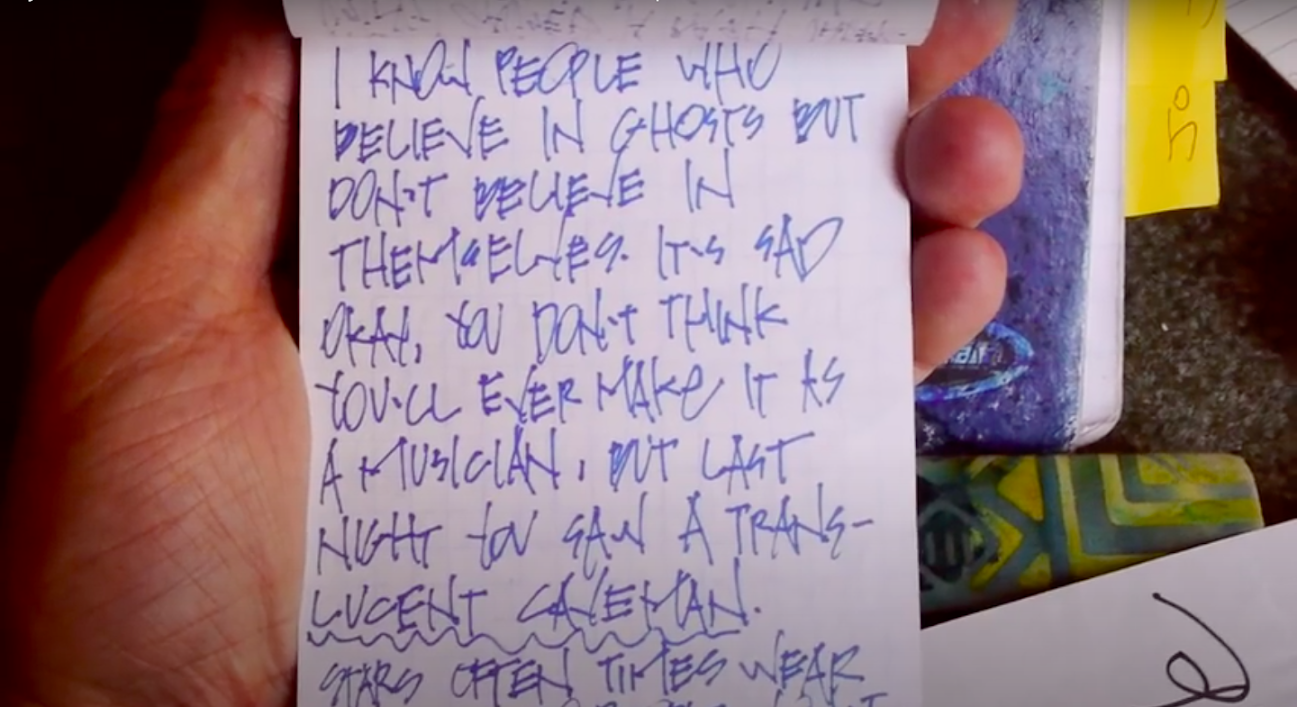 I KNOW PEOPLE WHO
BELIEVE IN GHOSTS BUT
DON'T BELIEVE IN
THEMSELVES. IT'S SAD
OKAY, YOU DON'T THINK
YOU'LL EVER MAKE IT AS
A MUSICIAN, BUT LAST
NIGHT YOU SAW A TRANS-
LUCENT CAVEMAN.
STARS OFTEN TIMES WEAR